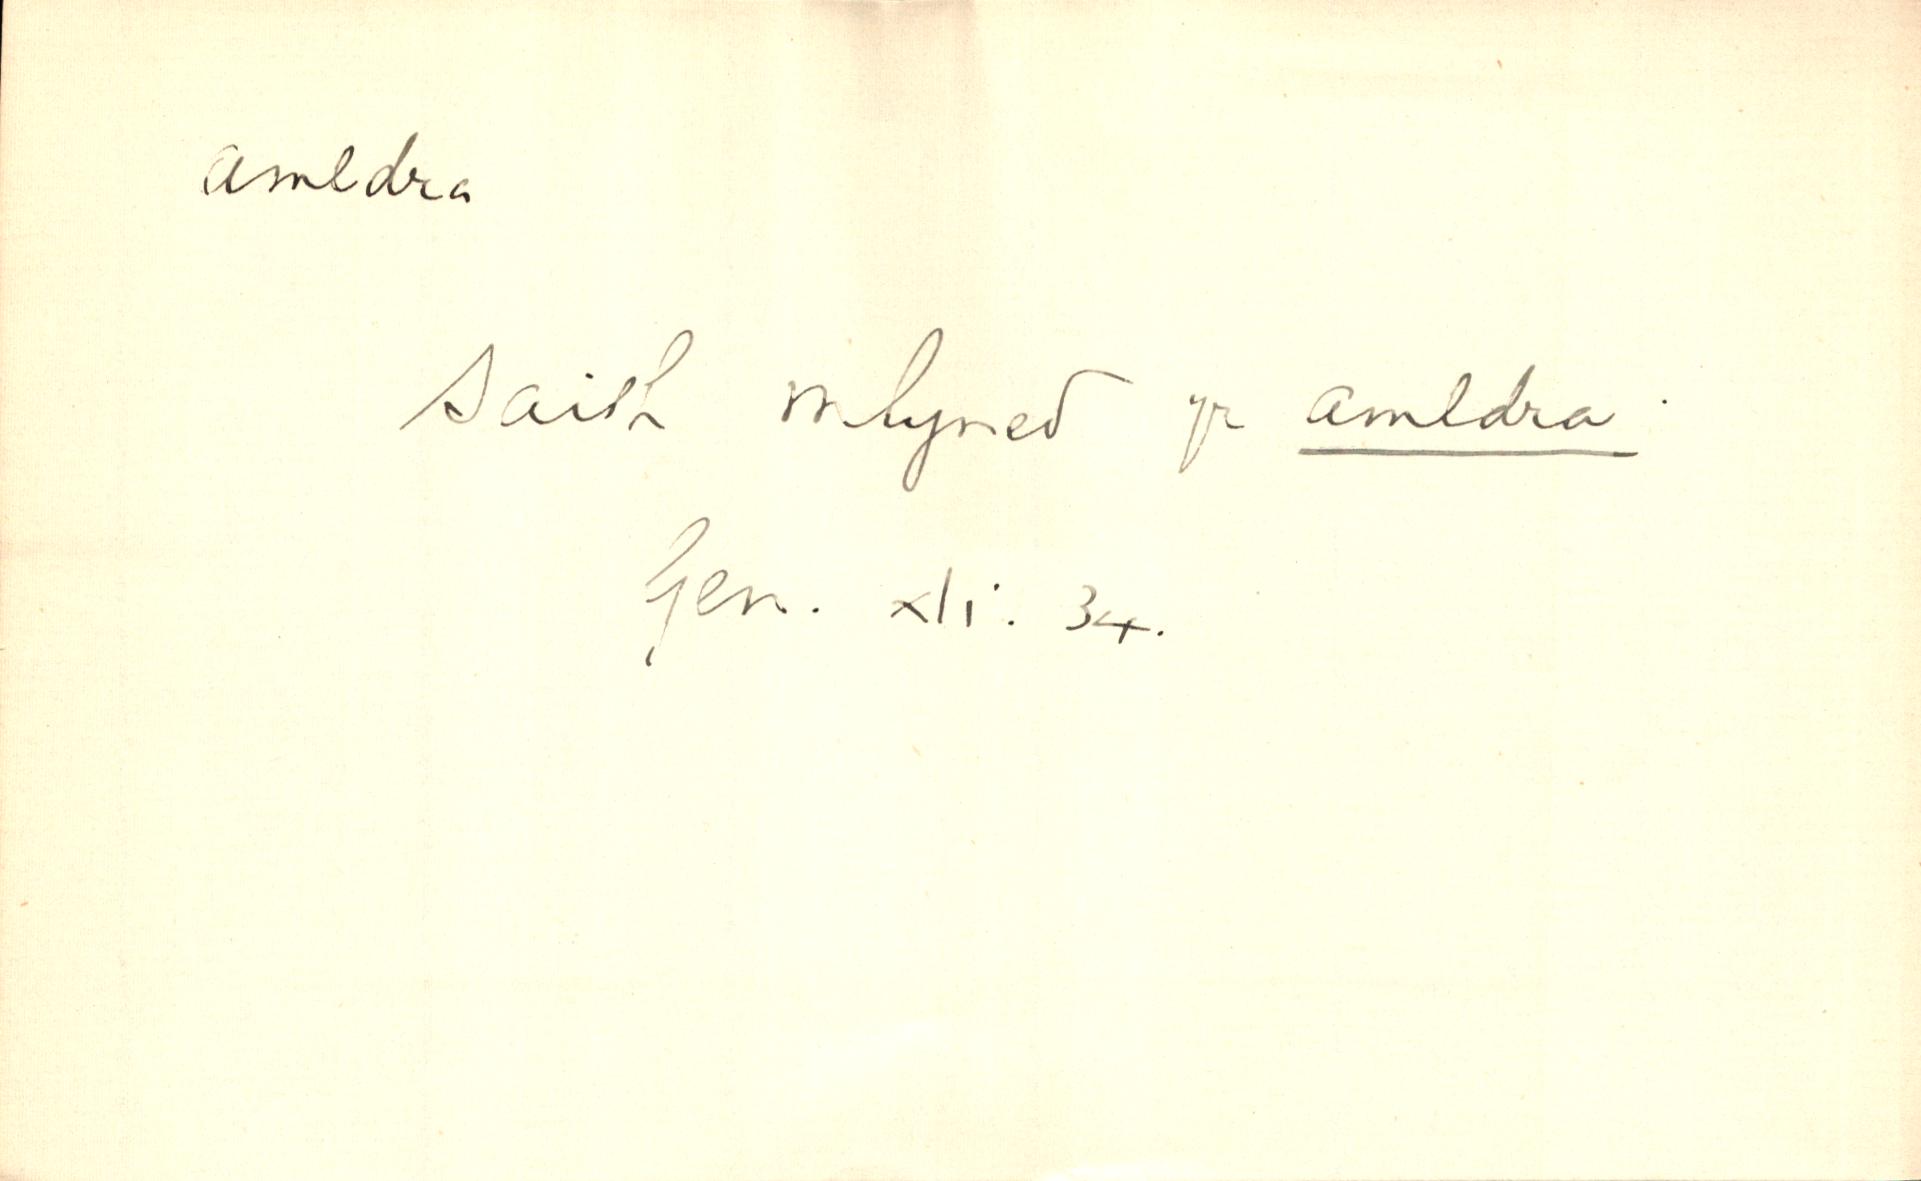 amldra
Saith mlyneð yr amldra.
Gen. xli. 34.